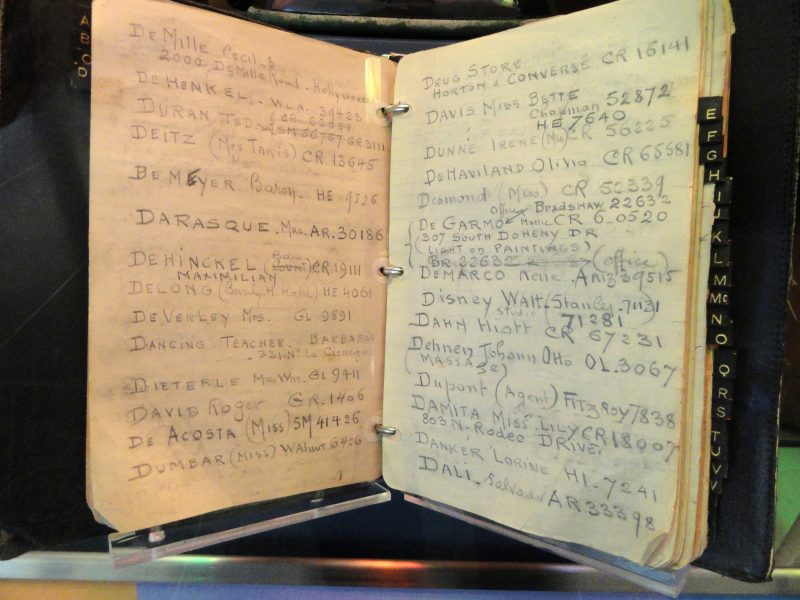 DeMille Cecil. B
2000 DeMille Road. Hollywood
DeHENKEL. WLA. 39425
DURAN TED.
SM 56757 GR 3111
DEITZ (Mrs Tanis) CR 13645
BEMEYER Baron. HE 9526
DARASQUE. Mrs. AR. 30186
DEHINCKEL (Baron CR 19111
MAXIMILIAN
DELONG (Beverly H. Hotel) HE 4061
DeVERLEY Mrs. GL 9891
DANCING TEACHER. BARBARA'S
331 N. La Cienega
DIETERLE Mrs Wm. GL 9411
DAVID Roger GR. 1406
DE ACOSTA (Miss) SM 41426
DUMBAR (Miss) Walnut 6426
DRUG STORE
HORTON & CONVERSE CR 16141
DAVIS MISS BETTE
Chapman 52872
HE 7640
DUNNE IRENE (Mu) CR 56225
DeHAVILAND Olivia CR 65581
Desmond (Miss) CR 52339
Office Bradshaw 22632
DE GARMO Home CR 6-0520
307 SOUTH DOHENY DR
(LIGHT ON PAINTINGS)
BR. 22632 (office)
DEMARCO Rene. ARiz 39515
Disney Walt. Stanley. 71131
Studio 71281
DAHN Hiatt CR 67231
Dehnen Johann Otto OL. 3067
(MASSAGE)
Dupont (Agent) FitzRoy 7838
DAMITA MISS. LILY CR 18007
803 N. RODEO DRIVE.
DANKER LORINE HI. 7241
DALI. Salvador AR 33398
A
B
C
D
E
F
G
H
I
J
K
L
M
Mc
N
O
Q
R
S
T
U
V